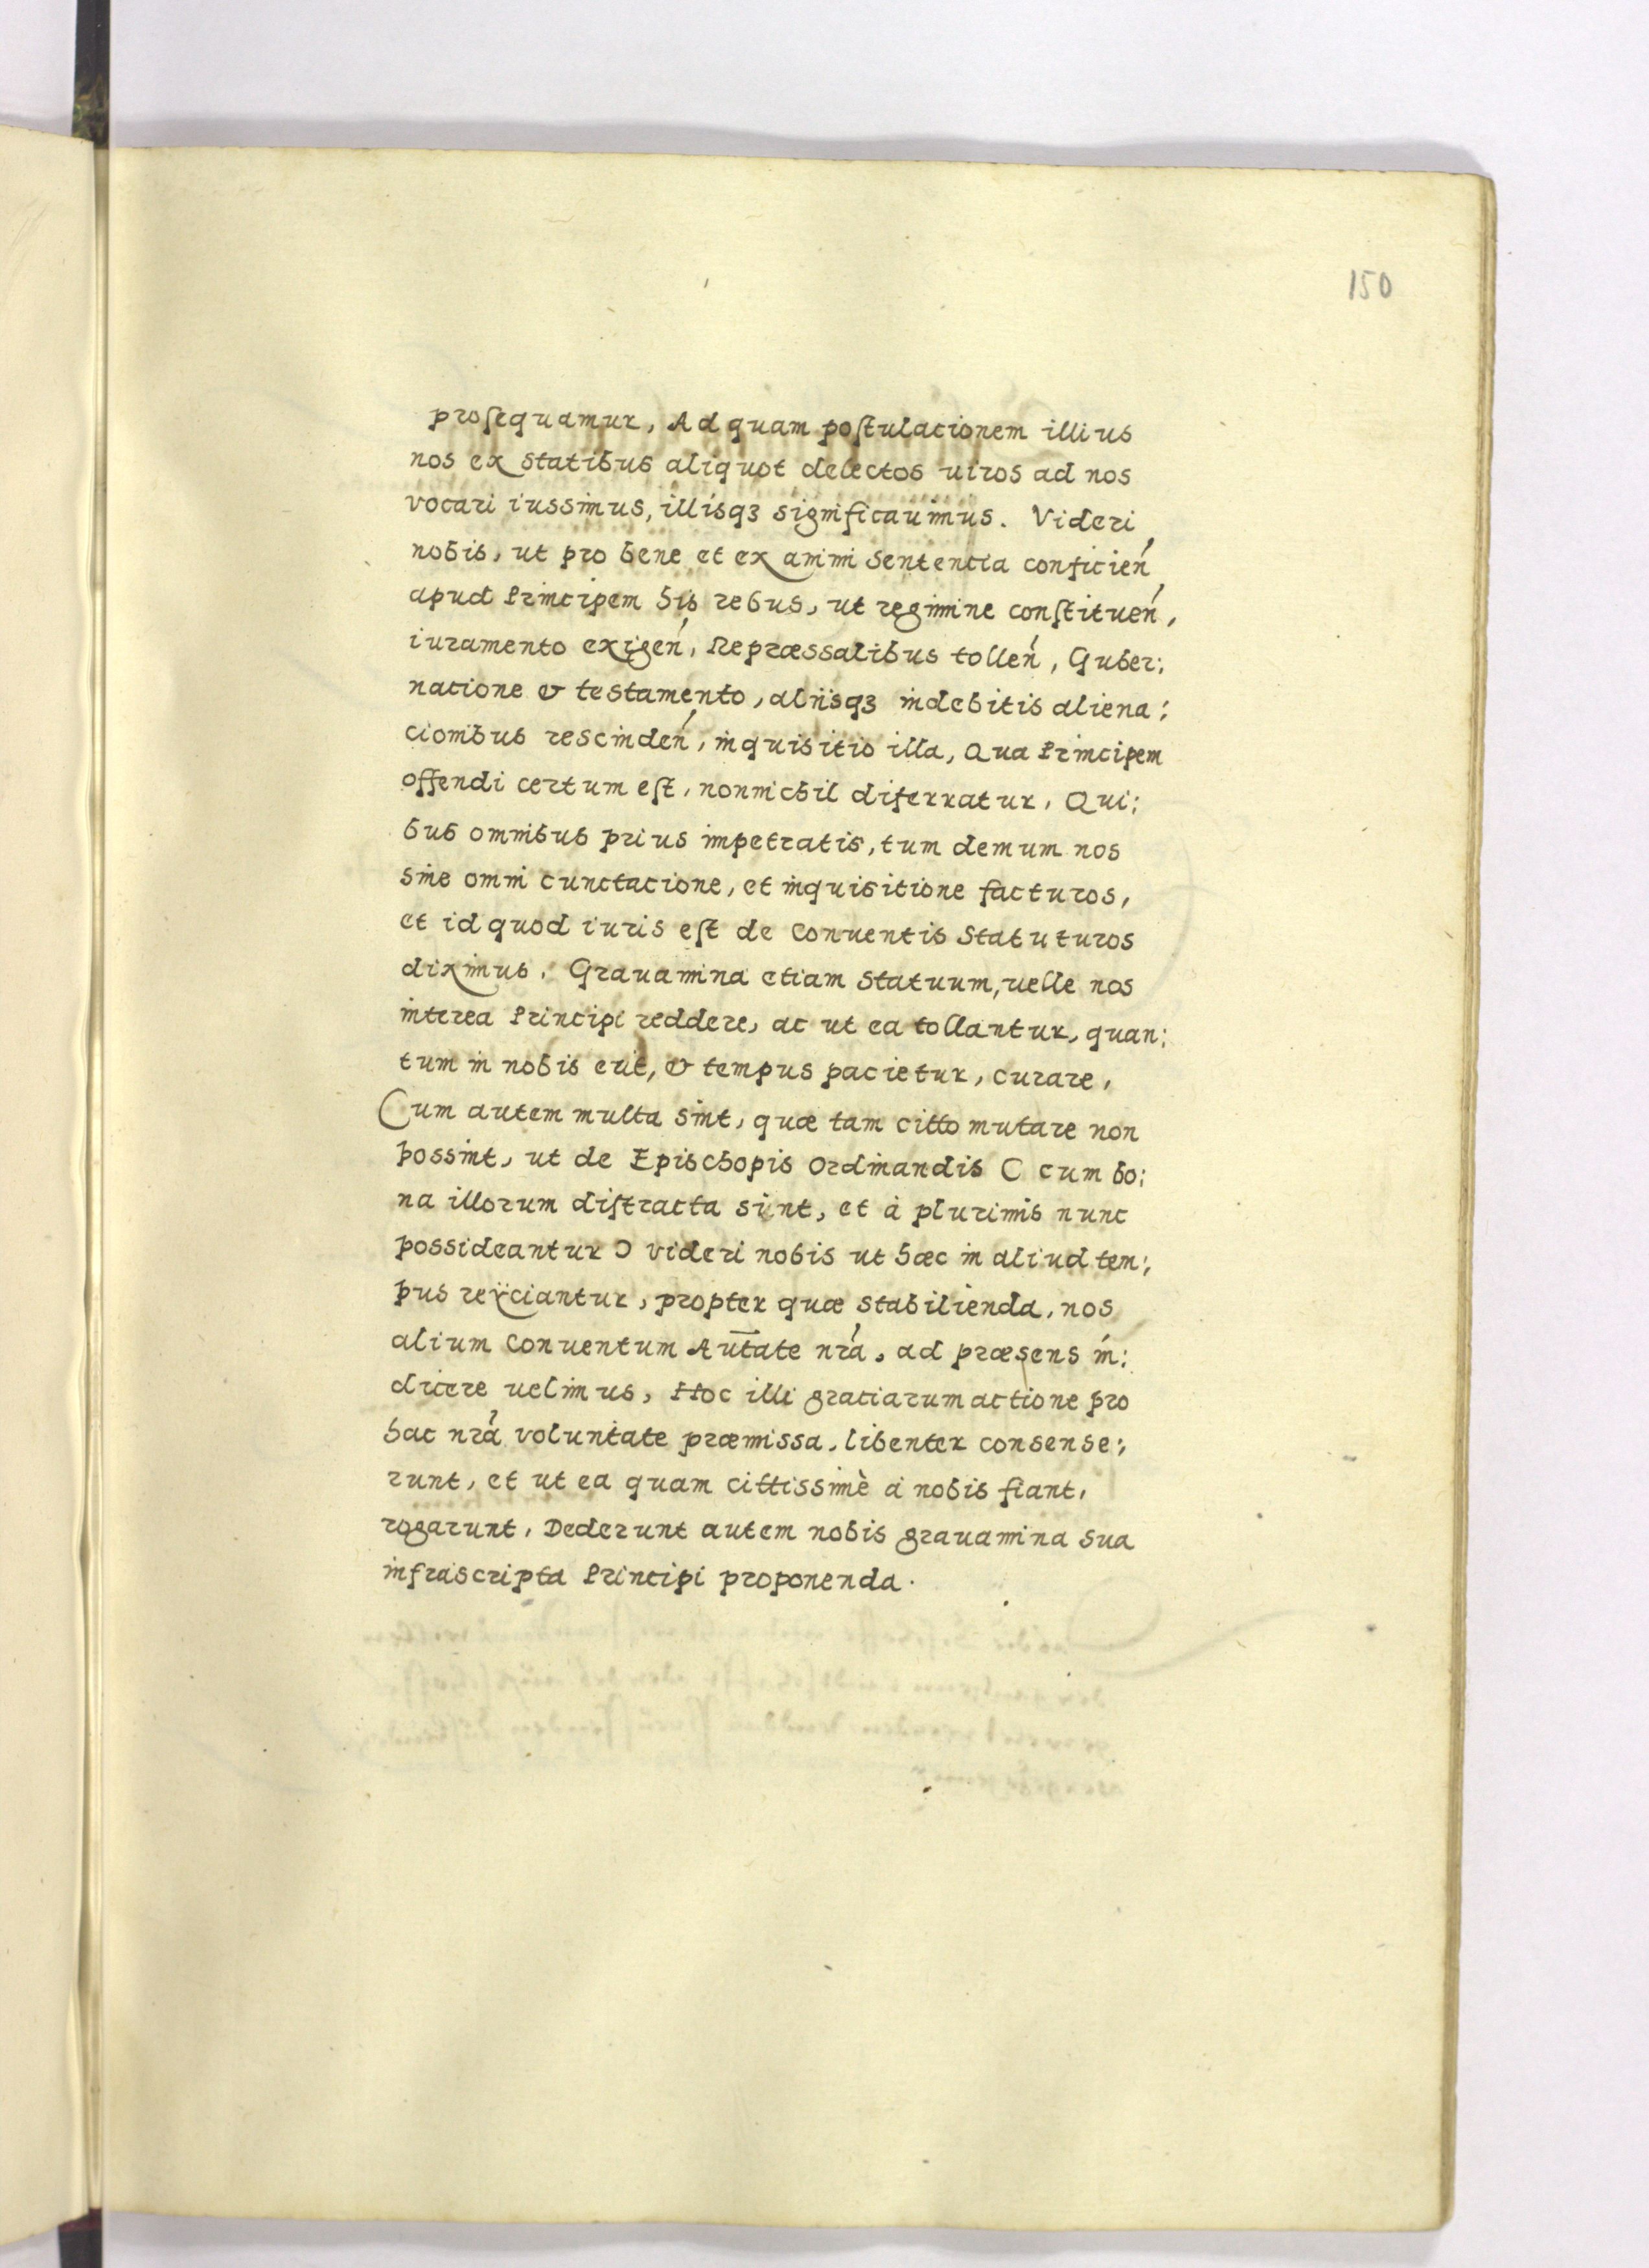 150
proſequamur, Ad quam poſtulacionem illius
nos ex statibus aliquot delectos uiros ad nos
vocari iussimus, illisqꝫ significauimus. Videri
nobis, ut pro bene et ex animi sententia conficień
apud Principem his rebus, ut regimine conſtitueń,
iuramento exigeń, Repræssalibus tolleń, Guber:
nacione & testamento, alijsqꝫ indebitis aliena:
cionibus rescindeń, inquisitio illa, Qua Principem
offendi certum eſt, nonnichil diferratur, Qui:
bus omnibus prius impetratis, tum demum nos
sine omni cunctacione, et inquisitione facturos,
et id quod iuris eſt de Conuentis Statuturos
diximus. Grauamina etiam Statuum, uelle nos
interea Principi reddere, ac ut ea tollantur, quan:
tum in nobis erit, & tempus pacietur, curare,
Cum autem multa sint, quæ tam citto mutare non
possint, ut de Epischopis Ordinandis ( cum bo:
na illorum diſtracta sint, et à plurimis nunc
possideantur ) videri nobis ut hæc in aliud tem:
pus reÿciantur, propter quæ stabilienda, nos
alium Conuentum Au͞tate nrá, ad præsens in:
dicere uelimus, Hoc illi graciarum actione pro
hac nrá voluntate præmissa, libenter consense:
runt, et ut ea quam cittissimè à nobis fiant,
rogarunt, Dederunt autem nobis grauamina sua
infrascripta Principi proponenda.